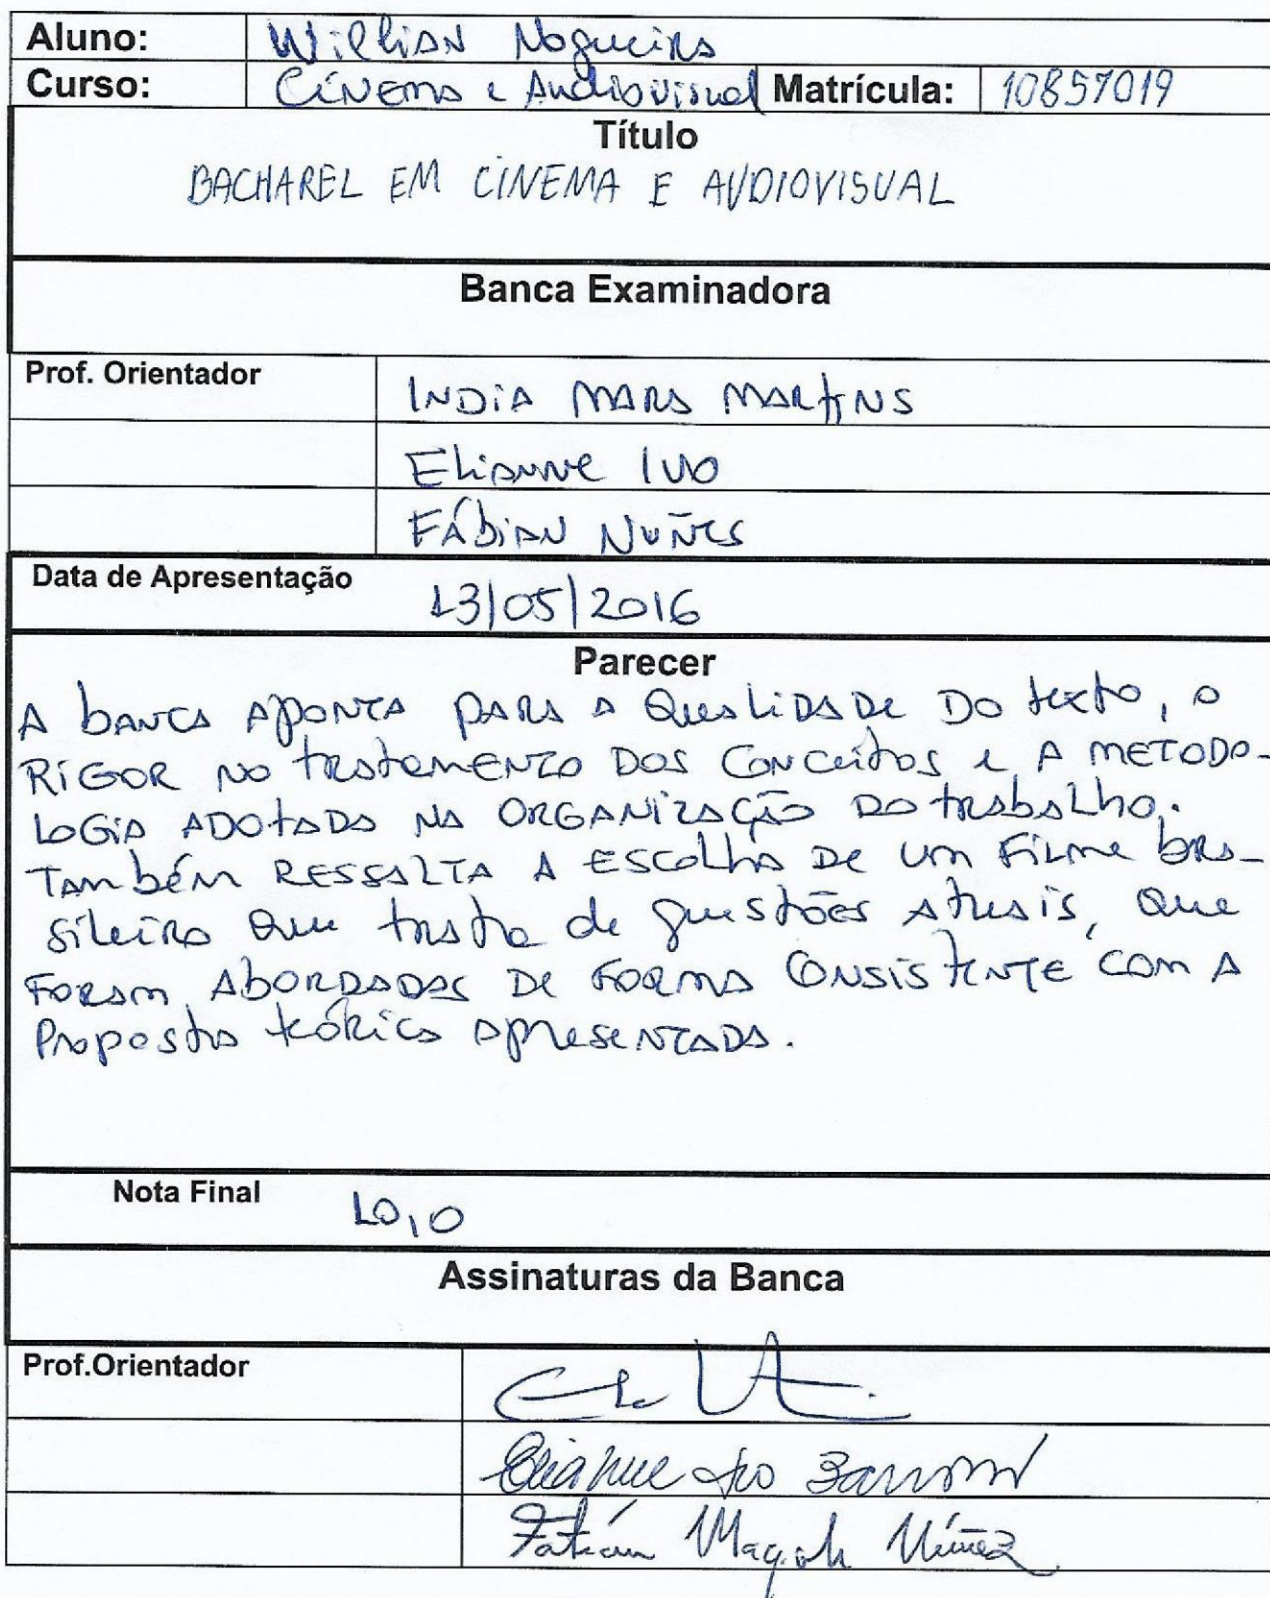 Aluno: Willian Nogueira
Curso: Cinema e Audiovisual Matrícula: 10857019
Título
BACHAREL EM CINEMA E AUDIOVISUAL
Banca Examinadora
Prof. Orientador INDIA MARA MARTINS
Elianne Ivo
FÁBIAN NUÑES
Data de Apresentação 13/05/2016
Parecer
A banca aponta para a qualidade do texto, o
rigor no tratamento dos conceitos e a metodo-
logia adotada na organização do trabalho.
Também ressalta a escolha de um filme bra-
sileiro que trata de questões atuais, que
foram abordadas de forma consistente com a
proposta teórica apresentada.
Nota Final 10,0
Assinaturas da Banca
Prof.Orientador
Elianne Ivo Barroso
Fabián Núñez